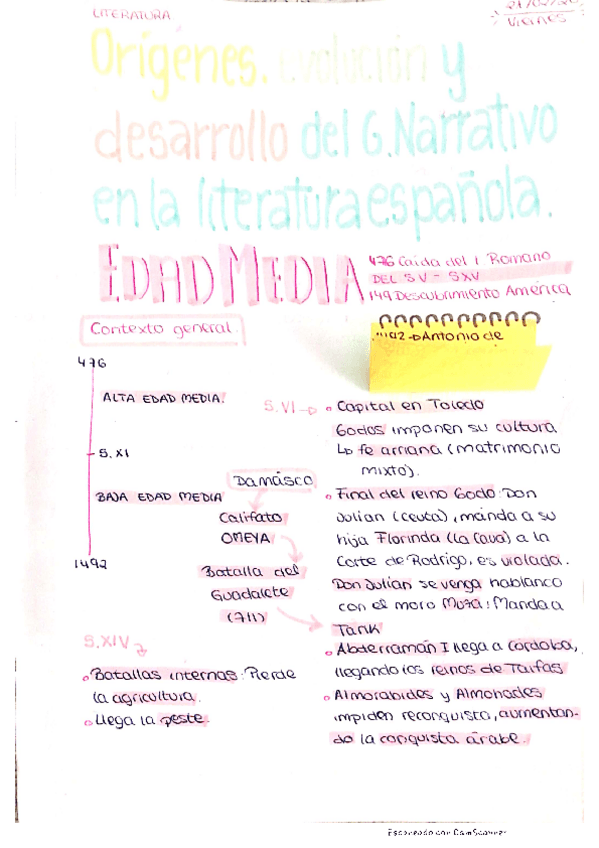 LITERATURA
21/02/20
Viernes
Orígenes, evolución y
desarrollo del G. Narrativo
en la literatura española.
EDAD MEDIA
476 Caída del I. Romano
DEL SV - SXV
149 Descubrimiento América
Contexto general.
1492 → Antonio de
476
ALTA EDAD MEDIA.
S. XI
BAJA EDAD MEDIA
1492
Damásco
Califato
OMEYA
Batalla del
Guadalete
(711)
S. VI → • Capital en Toledo
Godos imponen su cultura
↳ fe arriana (matrimonio
mixto).
• Final del reino Godo: Don
Julian (ceuta), manda a su
hija Florinda (la Cava) a la
Corte de Rodrigo, es violada.
Don Julian se venga hablanco
con el moro Muza: Manda a
Tarik
• Abderramán I llega a córdoba,
llegando los reinos de Taifas
• Almorabides y Almohades
impiden reconquista, aumentan-
do la conquista árabe.
S. XIV
• Batallas internas: Pierde
la agricultura.
• Llega la peste.
Escaneado con CamScanner